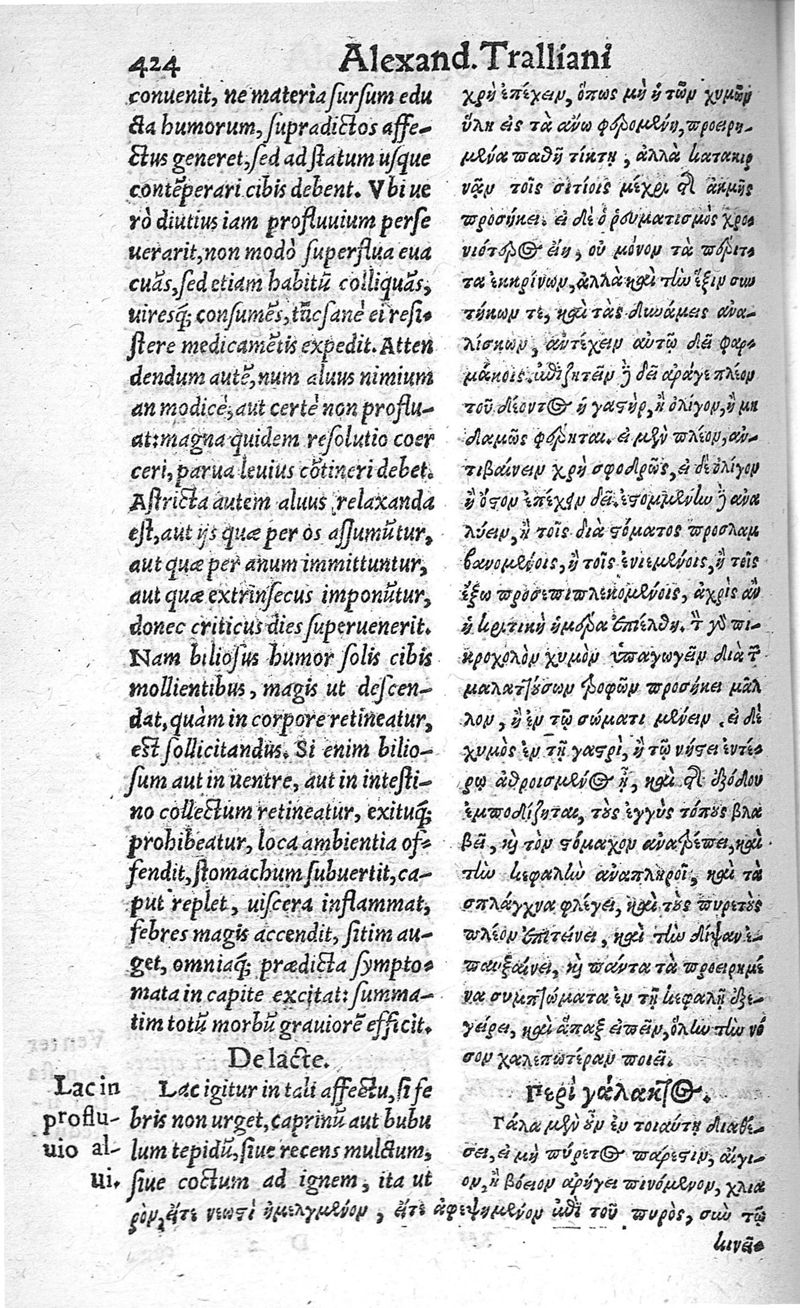 424
Alexand. Tralliani
conuenit, ne materia sursum edu
cta humorum, supradictos affe-
ctus generet, sed ad statum usque
contẽperari cibis debent. Vbi ue
rò diutius iam profluuium perse
uerarit, non modò superflua eua
cuãs, sed etiam habitũ colliquãs,
uiresq́; consumẽs, tũc sanè ei resi-
stere medicamẽtis expedit. Atten
dendum autẽ, num aluus nimium
an modicè, aut certè non proflu-
at: magna quidem resolutio coer
ceri, parua leuius cõtineri debet.
Astricta autem aluus relaxanda
est, aut ijs quæ per os assumũtur,
aut quæ per anum immittuntur,
aut quæ extrinsecus imponũtur,
donec criticus dies superuenerit.
Nam biliosus humor solis cibis
mollientibus, magis ut descen-
dat, quàm in corpore retineatur,
est sollicitandus. Si enim bilio-
sum aut in uentre, aut in intesti-
no collectum retineatur, exituq́;
prohibeatur, loca ambientia of-
fendit, stomachum subuertit, ca-
put replet, uiscera inflammat,
febres magis accendit, sitim au-
get, omniaq́; prædicta sympto-
mata in capite excitat: summa-
tim totũ morbũ grauiorẽ efficit.
De lacte.
Lac in
profluuio al-
ui.
Lac igitur in tali affectu, si fe
bris non urget, caprinũ aut bubu
lum tepidũ, siue recens mulctum,
siue coctum ad ignem, ita ut
χρὴ ἐπέχειν, ὅπως μὴ ἡ τῶν χυμῶν
ὕλη εἰς τὰ ἄνω φερομένη, προειρη-
μένα παθη τίκτῃ, ἀλλὰ κατακιρ
νᾷν τοῖς σιτίοις μέχρι τῆς ἀκμῆς
προσήκει. εἰ δὲ ὁ ρευματισμὸς χρο-
νιότερος εἴη, οὐ μόνον τὰ περιτ-
τα ἐκκρίνων, ἀλλὰ καὶ τὴν ἕξιν συν
τήκων τε, καὶ τὰς δυνάμεις ἀνα-
λίσκων, ἀντέχειν αὐτῷ δεῖ φαρ-
μάκοις. ἐπιζητεῖν δὲ δεῖ ἀράγε πλέον
τοῦ δέοντος ἡ γαστὴρ, ἢ ὀλίγον, ἢ μη
δαμῶς φέρηται. εἰ μὲν πλέον, ἀν-
τιβαίνειν χρὴ σφοδρῶς, εἰ δὲ ὀλίγον
ἧττον ἐπέχειν δεῖ. ἐστομμένην δὲ ἀνα
λύειν, ἢ τοῖς διὰ στόματος προσλαμ
βανομένοις, ἢ τοῖς ἐνιεμένοις, ἢ τοῖς
ἔξω προσεπιπλεκομένοις, ἄχρις ἂν
ἡ κριτικὴ ἡμέρα ἐπιέλθῃ. τὸν γὰρ πι-
κροχολὸν χυμὸν ὑπαγωγεῖν διὰ τῶν
μαλαττουσων ῥοφῶν προσήκει μᾶλ
λον, ἢ ἐν τῷ σώματι μένειν. εἰ δὲ
χυμὸς ἐν τῇ γαστρὶ, ἢ τῷ νήστει ἐντέ-
ρῳ ἀθροισμένος ᾖ, καὶ τῆς ἐξόδου
ἐμποδίζηται, τοὺς ἐγγὺς τόπους βλα
βεῖ, καὶ τὸν στόμαχον ἀνατρέπει, καὶ
τὴν κεφαλὴν ἀναπληροῖ, καὶ τὰ
σπλάγχνα φλέγει, καὶ τοὺς πυρετοὺς
πλέον ἐπιτείνει, καὶ τὴν δίψαν ἐ-
παυξαίνει, καὶ πάντα τὰ προειρημέ
να συμπτώματα ἐν τῇ κεφαλῇ ἐξε-
γείρει, καὶ ἅπαξ εἰπεῖν, ὅλην τὴν νό
σον χαλεπωτέραν ποιεῖ.
Περὶ γάλακτος.
Γάλα μὲν οὖν ἐν τοιαύτῃ διαθέ-
σει, εἰ μὴ πύρετος πάρεστιν, αἴγι-
ον, ἢ βόειον ἀρύγει πινόμενον, χλια
ρὸν, εἴτε νεωστὶ ἠμελγμένον, εἴτε ἀφεψημένον ἐπὶ τοῦ πυρὸς, σὺν τῷ
κινεῖ-